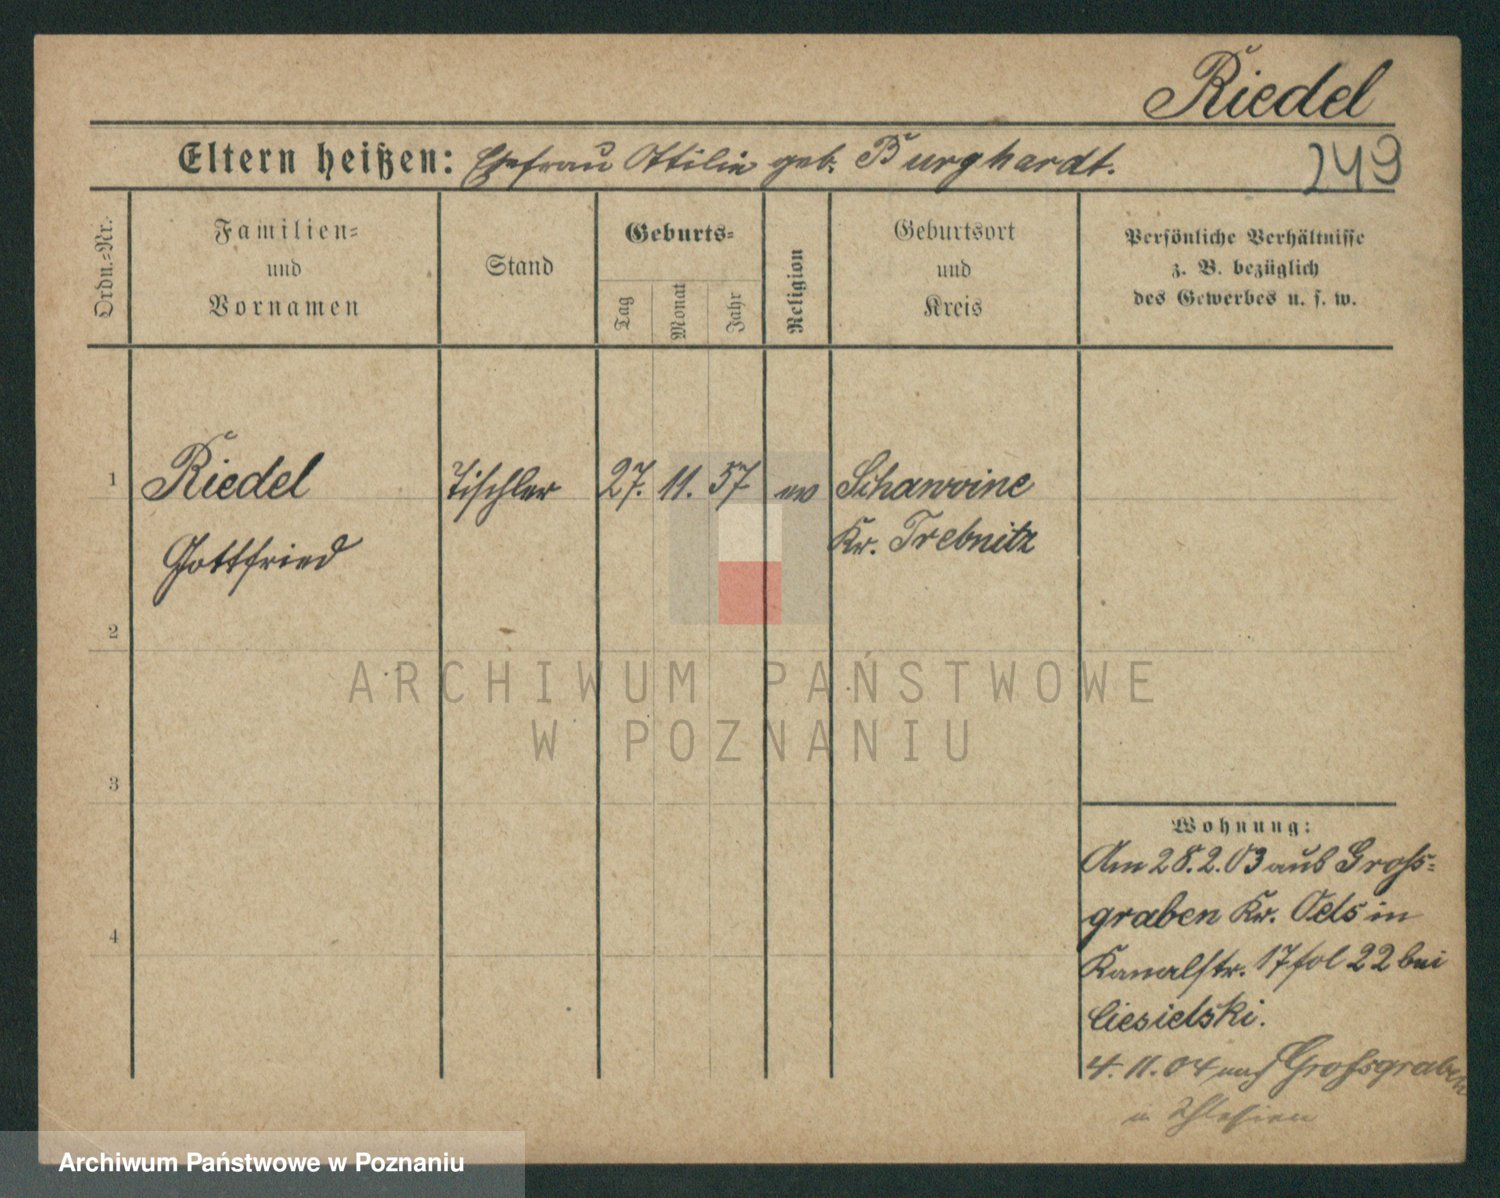 Riedel
Eltern heißen: Ehefrau Ottilie geb. Burghardt.
249
Ordn.-Nr.
Familien-
und
Vornamen
Stand
Geburts-
Tag
Monat
Jahr
Religion
Geburtsort
und
Kreis
Persönliche Verhältnisse
z. B. bezüglich
des Gewerbes u. s. w.
1 Riedel Tischler 27. 11. 57 ev Schawoine
Gottfried Kr. Trebnitz
2
ARCHIWUM PAŃSTWOWE
W POZNANIU
3
Wohnung:
Am 28.2.03 aus Gross-
graben Kr. Oels in
4
Kanalstr. 17 fol 22 bei
Ciesielski.
4.11.04 nach Grossgraben
in Schlesien
Archiwum Państwowe w Poznaniu